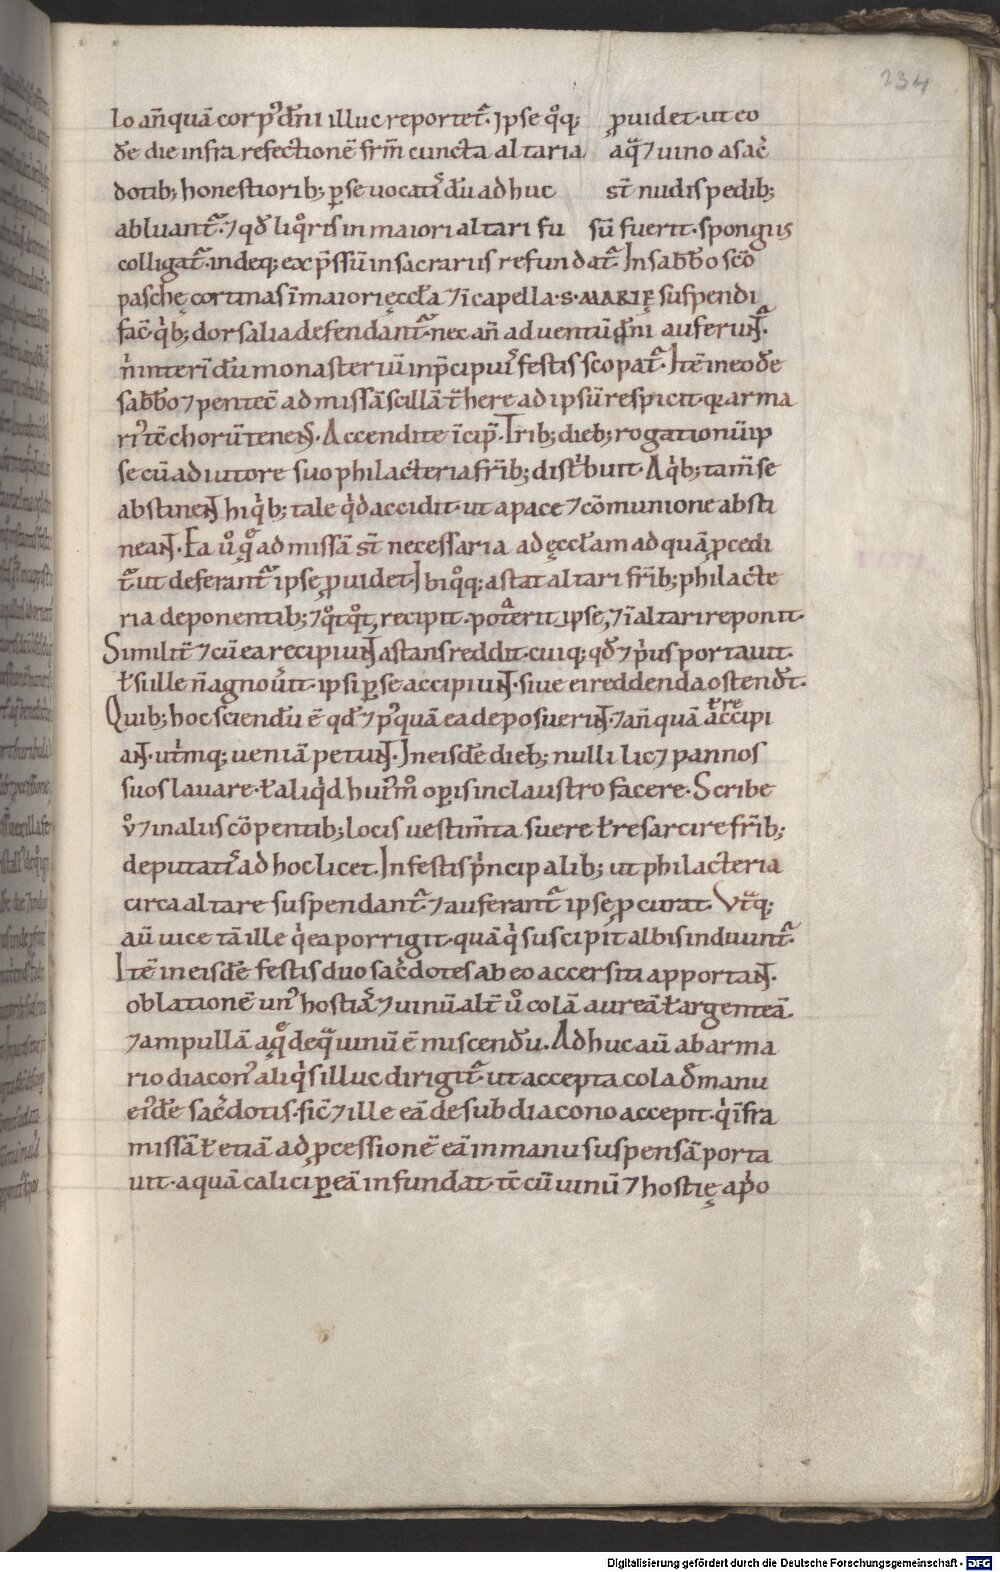 234
lo an̄quā corpꝰ dn̄i illuc reportet᷑. Ipse qͦq; ꝓuidet. ut eo
đe die infra refectionē frm̄ cuncta altaria aqͣ ⁊ uino a sac̓
dotib; honestiorib; ꝑ se uocatis dū adhuc st̄ nudis pedib;
abluant᷑. ⁊ qđ liqͦris in maiori altari fu sū fuerit. spongiis
colligat᷑. indeq; exp̄ssū in sacrariis refundat᷑. In sabb̄o sc̄o
paschę cortinas ī maiori ęccƚa ⁊ ī capella. S. MARIĘ suspendi
fac̄. qͥb; dorsalia defendant᷑. nec an̄ aduentū dn̄i auferunt᷑.
n̓ interī dū monasteriū in p̄cipuis festis scopat᷑. Itē in eođe
sabb̄o ⁊ pentec̄ ad missā scillā t̓here ad ipsū respicit. q̄ armarīꝰ
tc̄ chorū tenens. Accendite īcip̄. Trib; dieb; rogationū ip
se cū adiutore suo philacteria frīb; distͥbuit. Aqͥb; tam̄ se
abstinent hi qͥb; tale qͥd accidit. ut a pace ⁊ cōmunione absti
neant. Ea u̓o qͣ ad missā st̄ necessaria ad ęccƚam ad quā ꝓcedi
t᷑. ut deferant᷑ ipse ꝓuidet. Ibi qͦq; astat altari frīb; philacte
ria deponentib; ⁊ qͦtqͦt recipit. potͣerit ipse, ⁊ ī altari reponit.
Similit̄ ⁊ cū ea recipiunt astans reddit. cuiq; qđ ⁊ pͥus portauit.
ƚ si ille n̄ agnou̓it. ipsi ꝑ se accipiunt. siue ei reddenda ostendt̄.
Quib; hoc sciendū ē qđ ⁊ pꝰquā ea deposuerint. ⁊ an̄quā accipi
ƚ re
ant. utͥmq; ueniā petunt. In eisđe dieb; nulli lic⁊ pannos
suos lauare. ƚ aliqͥd huiꝰmͦ opis in claustro facere. Scribe
u̓o ⁊ in aliis cōpetentib; locis uestim̄ta suere ƚ resarcire frīb;
deputatis ad hoc licet. In festis pͥncipalib; ut philacteria
circa altare suspendant᷑ ⁊ auferant᷑ ipse ꝓcurat. Vtͥq;
aū uice tā ille qͥ ea porrigit. quā qͥ suscipit albis induunt᷑.
Itē in eisđe festis duo sac̓dotes ab eo accersiti apportant.
oblationē unꝰ hostias ⁊ uinū. alt̄ u̓o colā aureā ƚ argenteā.
⁊ ampullā aqͣ de qͣ uinū ē miscendū. Adhuc aū ab arma
rio diaconꝰ aliqͥs illuc dirigit᷑. ut accepta cola đ manu
eiꝰđe sac̓dotis. sic̄ ⁊ ille eā de subdiacono accepit. qͥ īfra
missā ƚ etiā ad ꝓcessionē eā in manu suspensā porta
uit. aquā calici ꝑ eā infundat. tc̄ cū uinū ⁊ hostię a pͥo
Digitalisierung gefördert durch die Deutsche Forschungsgemeinschaft - DFG